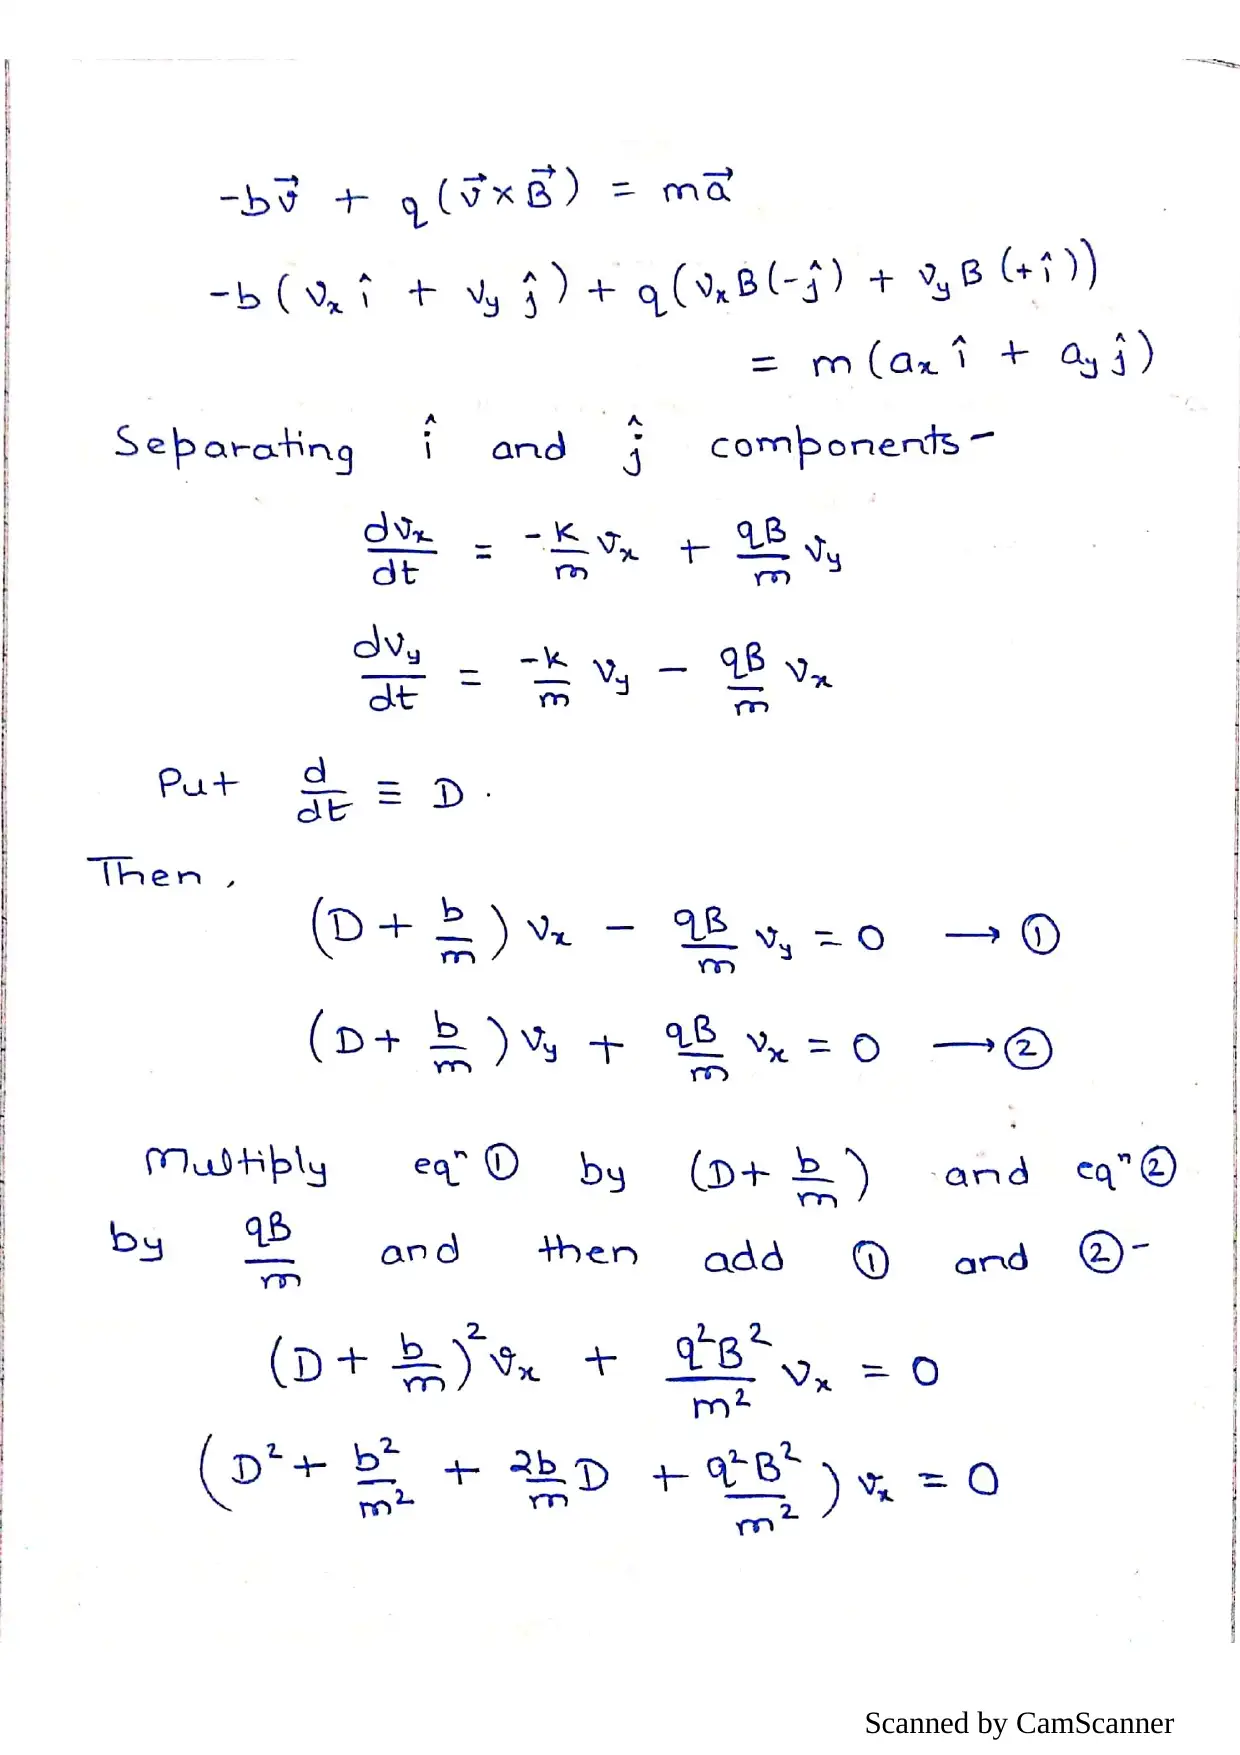 -bv⃗ + q(v⃗×B⃗) = ma⃗
-b(vₓ î + v_y ĵ) + q(vₓB(-ĵ) + v_yB(+î))
= m(aₓ î + a_y ĵ)
Separating î and ĵ components-
dvₓ/dt = -k/m vₓ + qB/m v_y
dv_y/dt = -k/m v_y - qB/m vₓ
Put d/dt ≡ D.
Then,
(D + b/m) vₓ - qB/m v_y = 0 → ①
(D + b/m) v_y + qB/m vₓ = 0 → ②
Multiply eqⁿ ① by (D + b/m) and eqⁿ ②
by qB/m and then add ① and ②-
(D + b/m)² vₓ + q²B²/m² vₓ = 0
(D² + b²/m² + 2b/m D + q²B²/m²) vₓ = 0
Scanned by CamScanner